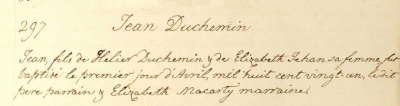 297 Jean Duchemin
Jean, fils de Helier Duchemin & de Elizabeth Jehan sa femme, fut
baptisé le premier jour d'Avril, mil huit cent vingt-un, ledit
pere parrain & Elizabeth Macarty marraine.